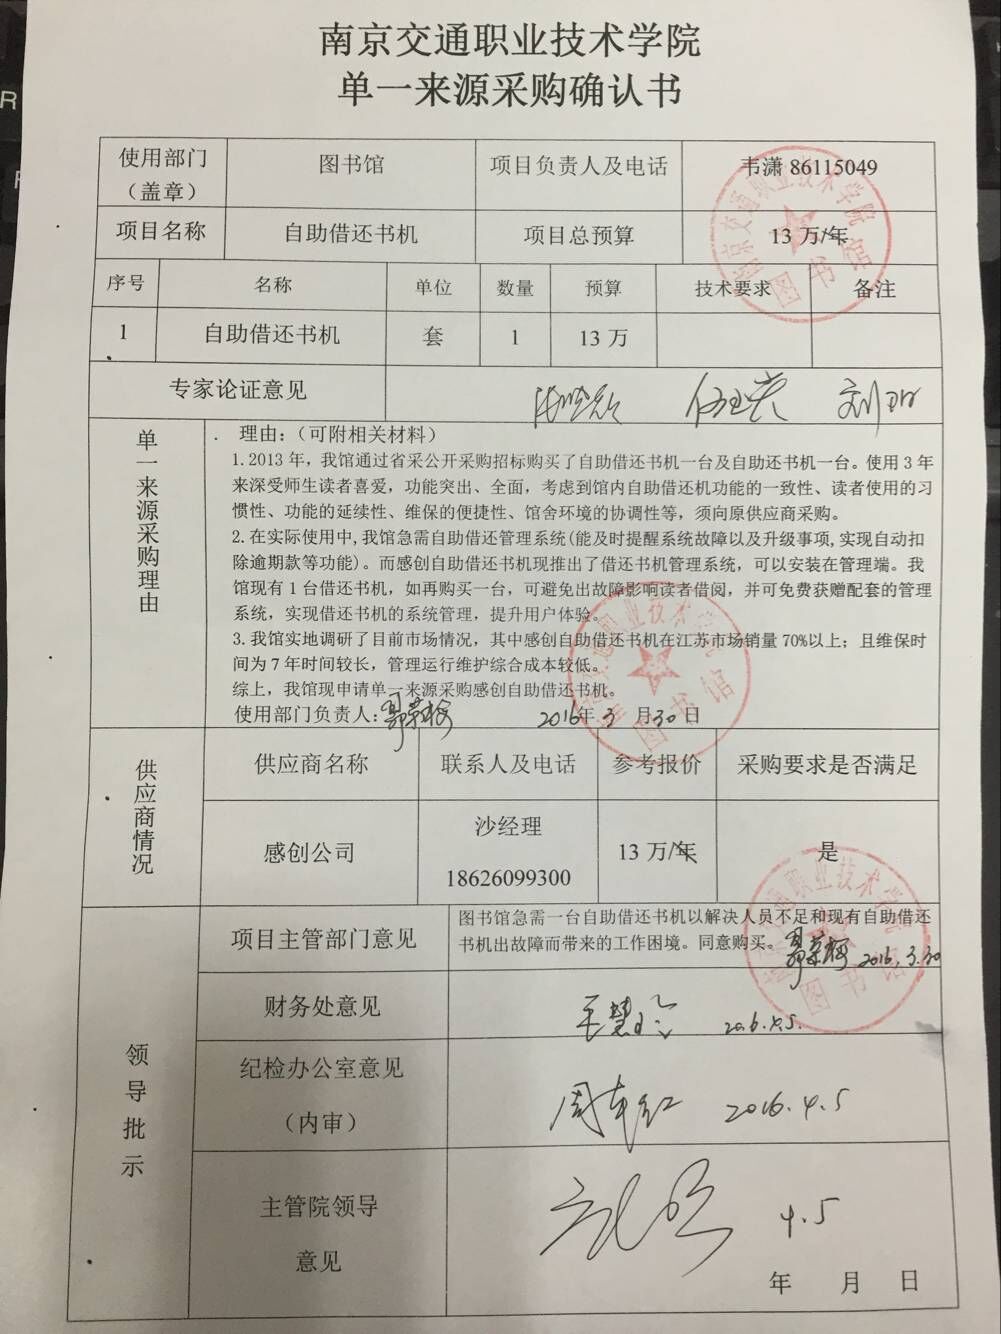 南京交通职业技术学院
单一来源采购确认书
使用部门
（盖章）
图书馆
项目负责人及电话
韦潇 86115049
项目名称
自助借还书机
项目总预算
13 万/年
序号
名称
单位
数量
预算
技术要求
备注
1
自助借还书机
套
1
13 万
专家论证意见
单一来源采购理由
理由：（可附相关材料）
1.2013 年，我馆通过省采公开采购招标购买了自助借还书机一台及自助还书机一台。使用 3 年
来深受师生读者喜爱，功能突出、全面，考虑到馆内自助借还机功能的一致性、读者使用的习
惯性、功能的延续性、维保的便捷性、馆舍环境的协调性等，须向原供应商采购。
2.在实际使用中,我馆急需自助借还管理系统(能及时提醒系统故障以及升级事项,实现自动扣
除逾期款等功能)。而感创自助借还书机现推出了借还书机管理系统，可以安装在管理端。我
馆现有 1 台借还书机，如再购买一台，可避免出故障影响读者借阅，并可免费获赠配套的管理
系统，实现借还书机的系统管理，提升用户体验。
3.我馆实地调研了目前市场情况，其中感创自助借还书机在江苏市场销量 70%以上；且维保时
间为 7 年时间较长，管理运行维护综合成本较低。
综上，我馆现申请单一来源采购感创自助借还书机。
使用部门负责人： 2016年 3 月30日
供应商情况
供应商名称
联系人及电话
参考报价
采购要求是否满足
感创公司
沙经理
18626099300
13 万/年
是
领导批示
项目主管部门意见
图书馆急需一台自助借还书机以解决人员不足和现有自助借还
书机出故障而带来的工作困境。同意购买。 2016.3.30
财务处意见
2016.4.5.
纪检办公室意见
（内审）
2016.4.5
主管院领导
意见
4.5
年 月 日
南京交通职业技术学院
图书馆
南京交通职业技术学院
图书馆
南京交通职业技术学院
图书馆